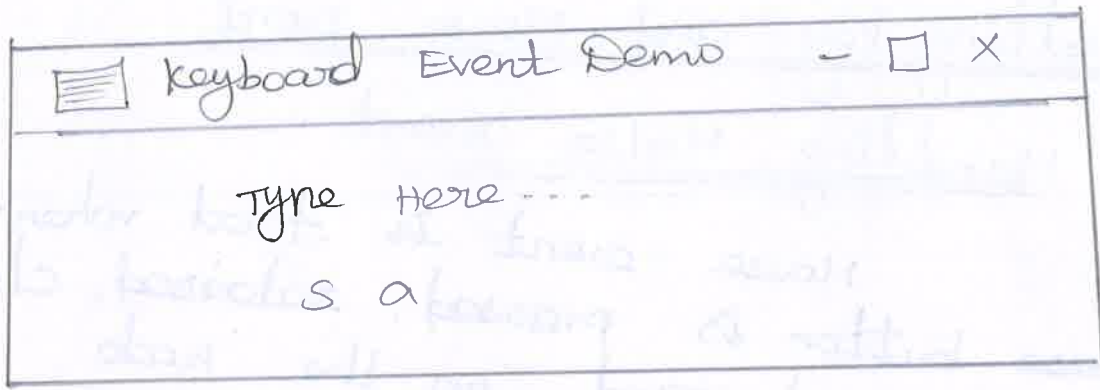 Keyboard Event Demo - □ X
Type Here ...
s a